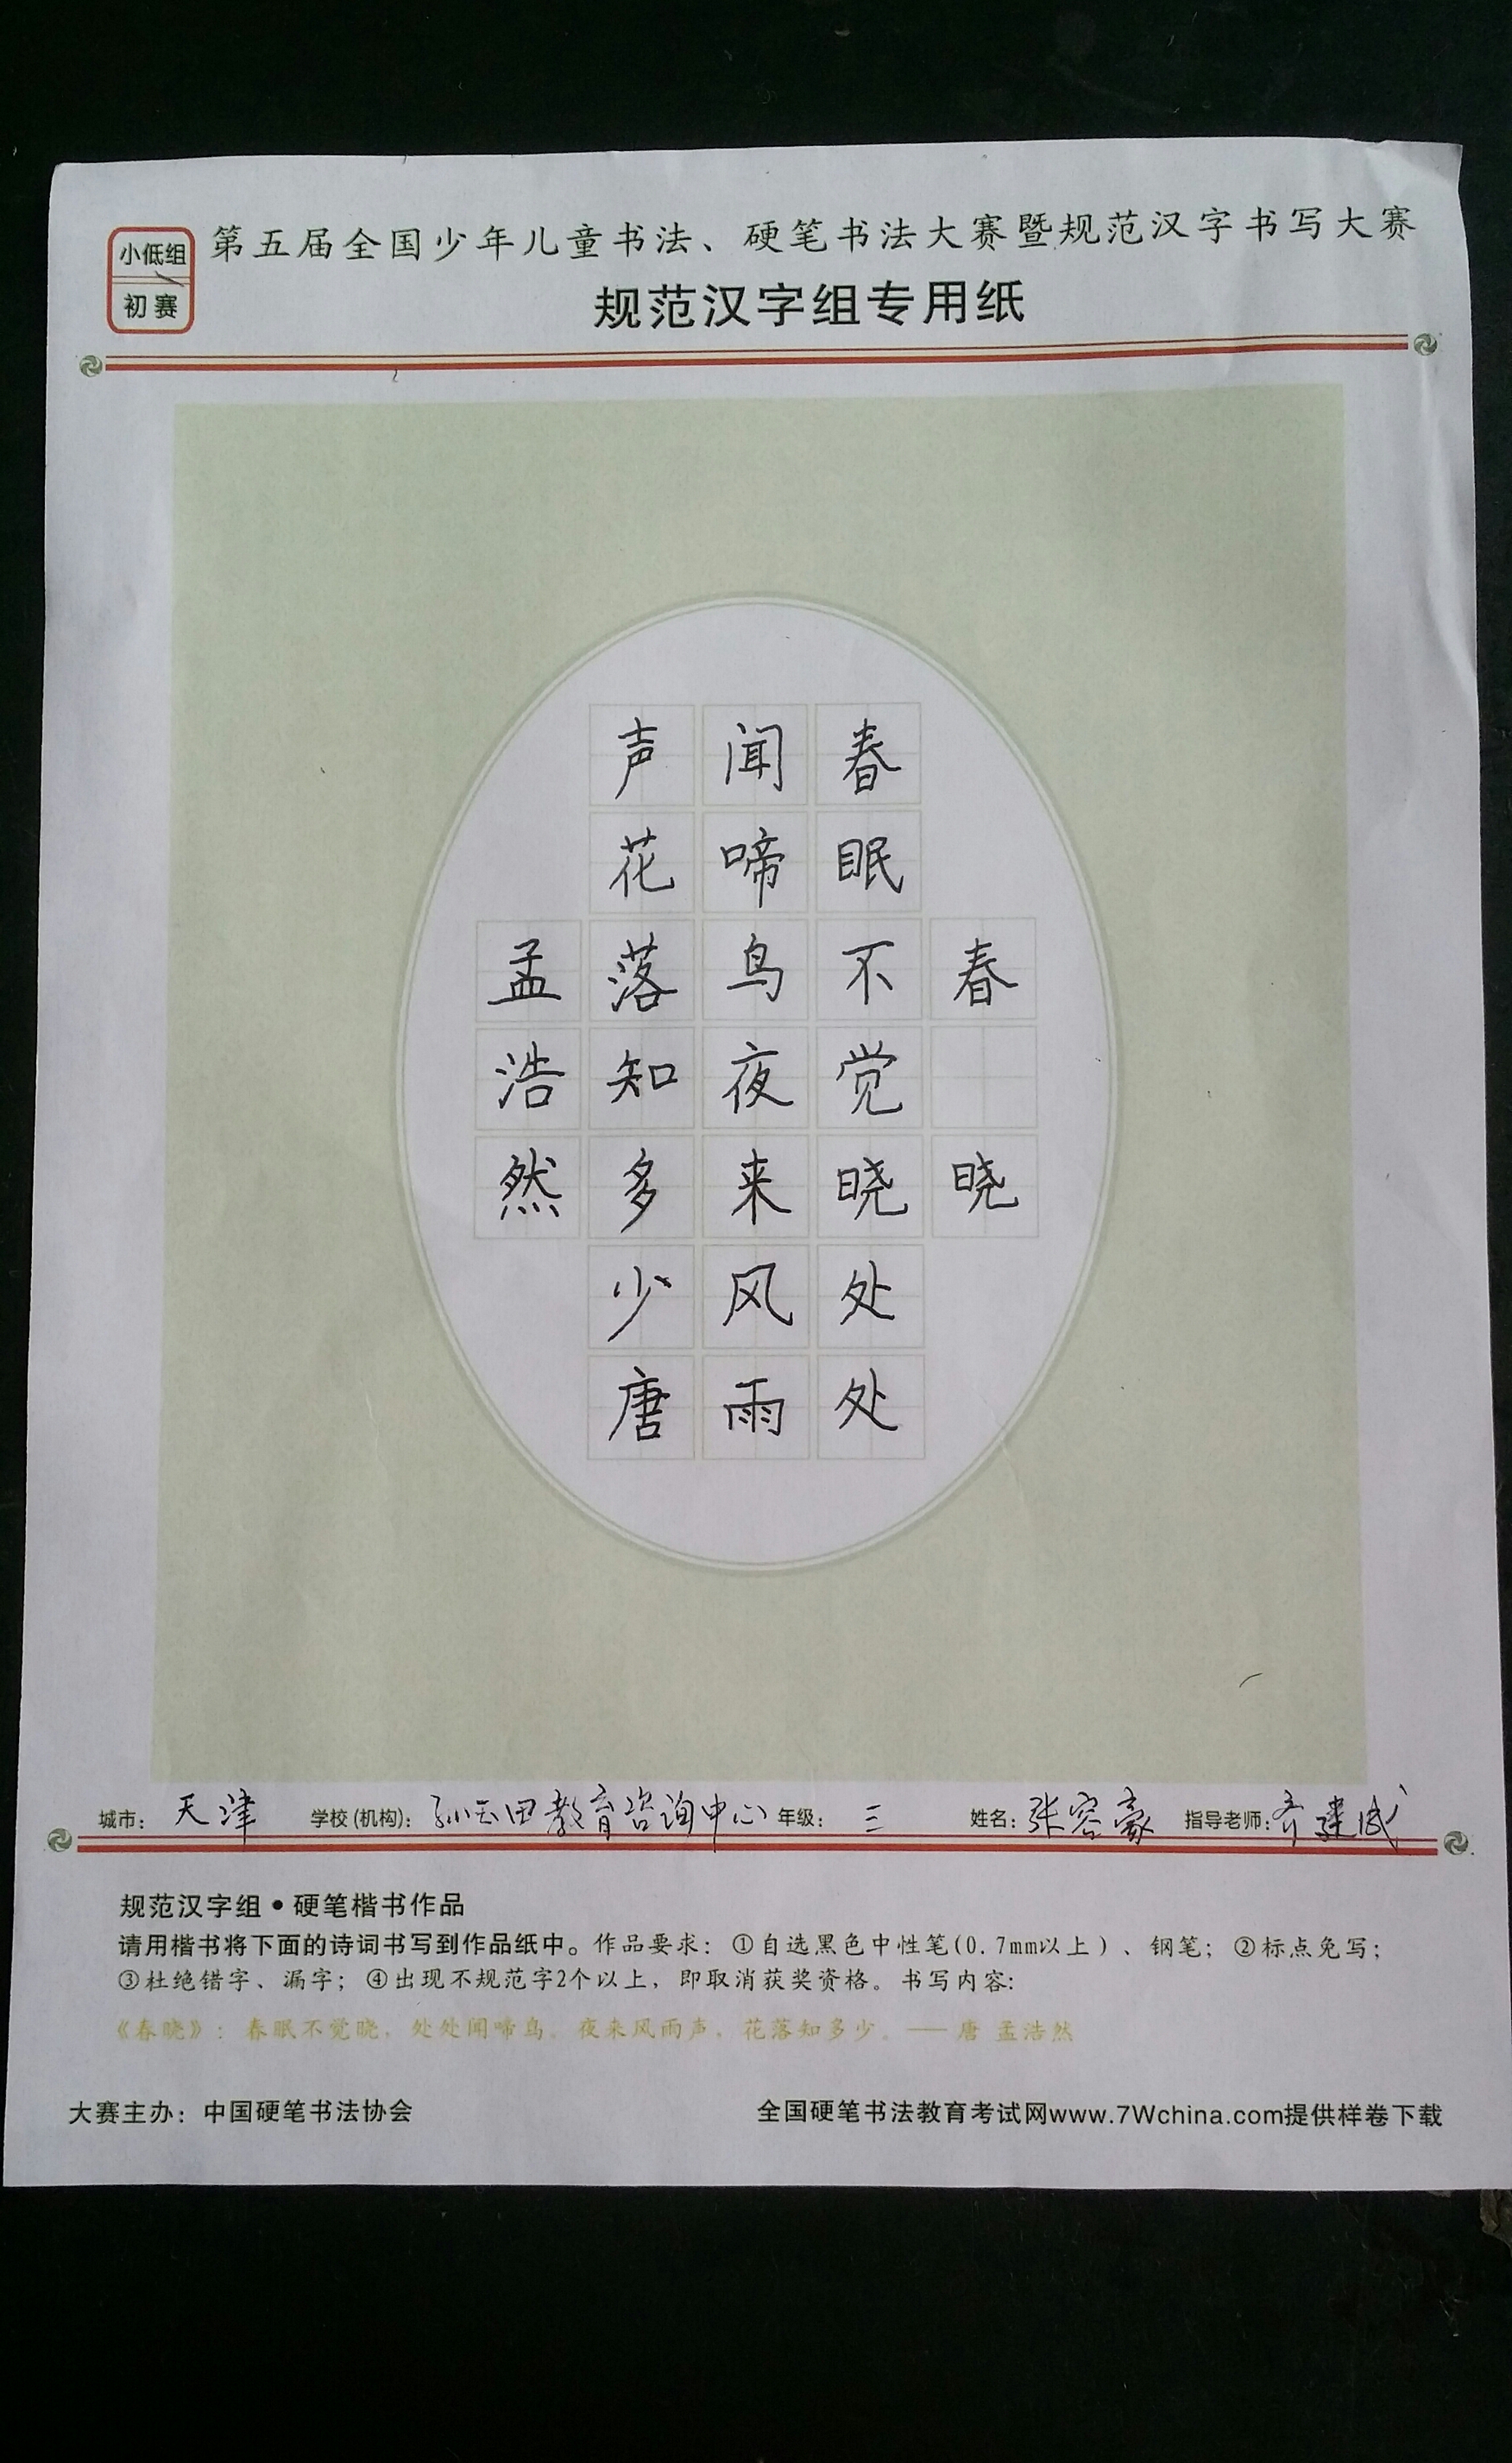 小低组
初赛
第五届全国少年儿童书法、硬笔书法大赛暨规范汉字书写大赛
规范汉字组专用纸
春晓
春眠不觉晓处处
闻啼鸟夜来风雨
声花落知多少唐
孟浩然
城市：天津 学校(机构)：孙玉田教育咨询中心 年级：三 姓名：张容豪 指导老师：齐建民
规范汉字组•硬笔楷书作品
请用楷书将下面的诗词书写到作品纸中。作品要求：①自选黑色中性笔(0.7mm以上)、钢笔；②标点免写；
③杜绝错字、漏字；④出现不规范字2个以上，即取消获奖资格。书写内容：
《春晓》：春眠不觉晓，处处闻啼鸟。夜来风雨声，花落知多少。——唐 孟浩然
大赛主办：中国硬笔书法协会
全国硬笔书法教育考试网www.7Wchina.com提供样卷下载